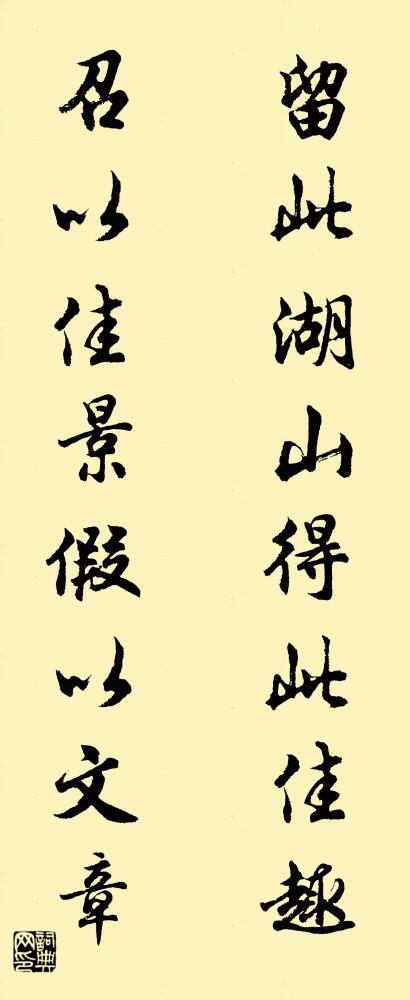 留此湖山得此佳趣
召以佳景假以文章
詞典网印